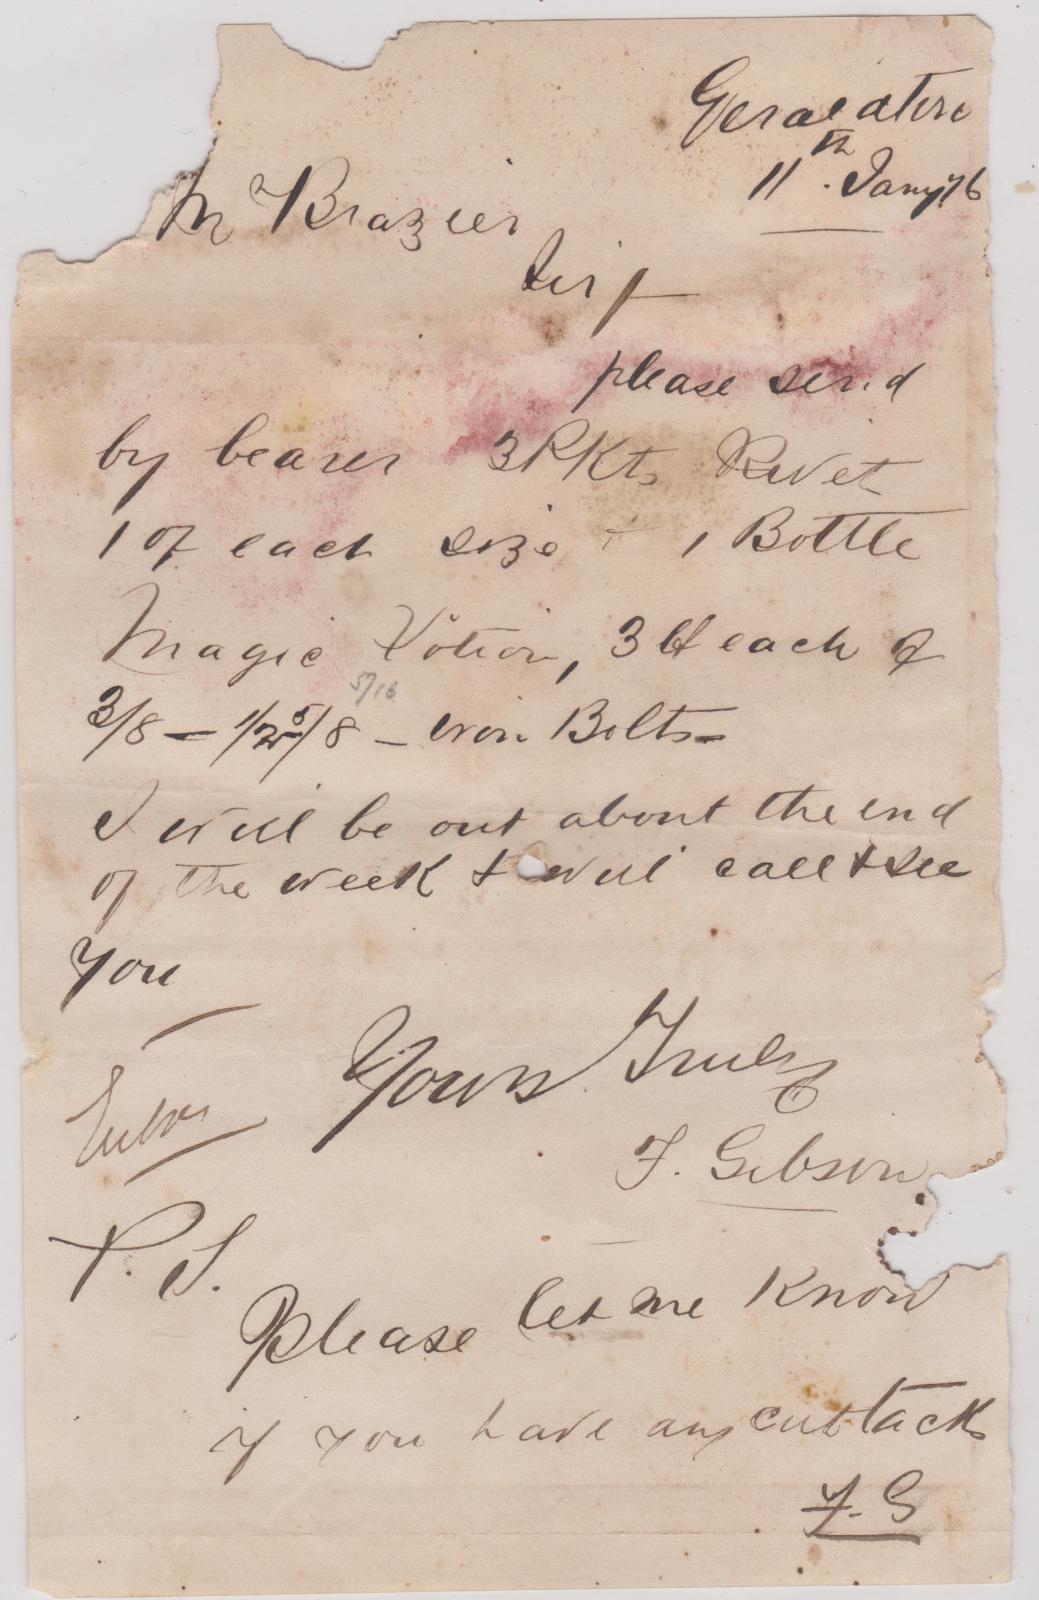 Geraldine
11th. Jany 76
Mr Brazier
Sir/
please send
by bearer 3 PKts Rivet
1 of each size + 1 Bottle
Magic Votion, 3 lb each of
5/16
3/8 – 1/2 5/8 – iron Bolts –
I will be out about the end
of the week & will call & see
you
Yours Truly
F. Gibson
P. S.
Please let me Know
if you have any cut tacks
F. G